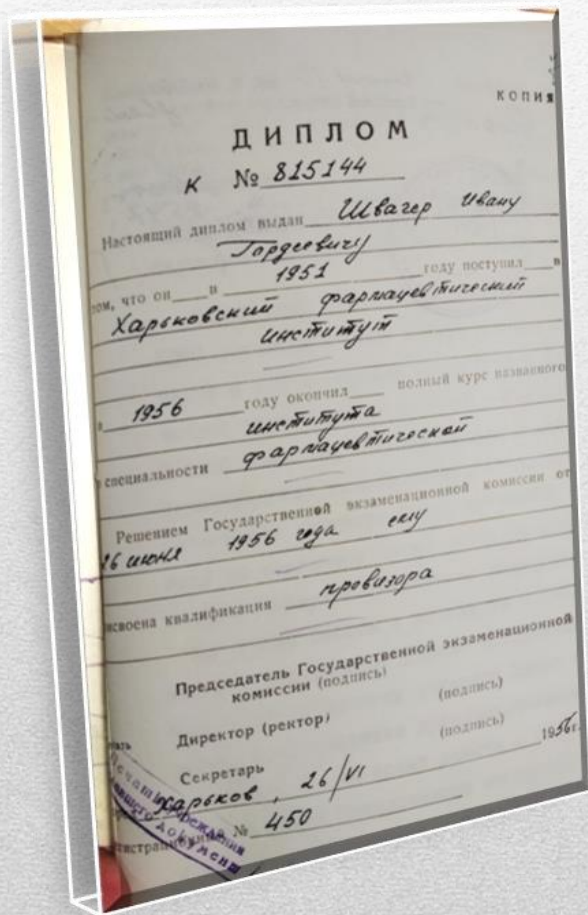 КОПИЯ
ДИПЛОМ
К № 815144
Настоящий диплом выдан Швагер Ивану
Гордеевичу
том, что он в 1951 году поступил в
Харьковский фармацевтический
институт
в 1956 году окончил полный курс названного
института
специальности фармацевтической
Решением Государственной экзаменационной комиссии от
26 июня 1956 года ему
исвоена квалификация провизора
Председатель Государственной экзаменационной
комиссии (подпись)
Директор (ректор) (подпись)
Секретарь (подпись)
Харьков, 26/VI 1956 г.
№ 450